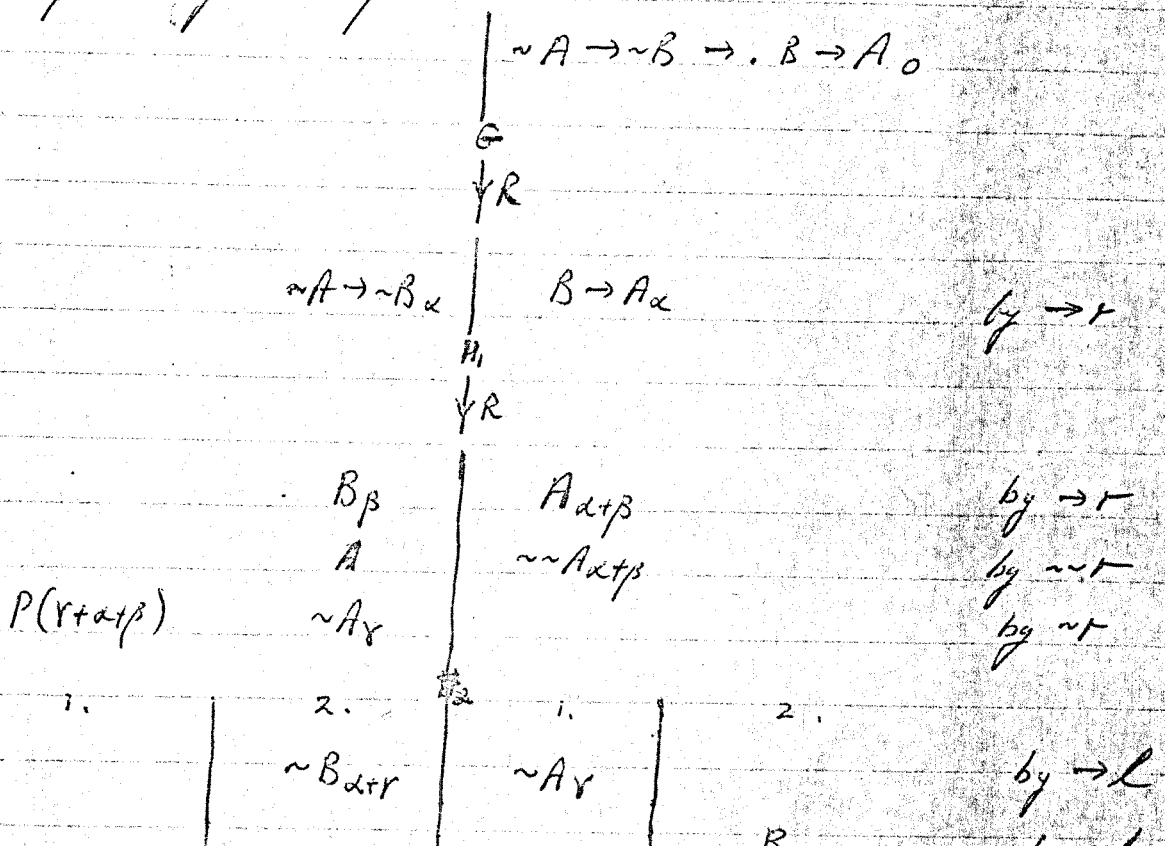 ~A → ~B → . B → A₀
G
↓ R
~A → ~B_α B → A_α by → r
H₁
↓ R
B_β A_{α+β} by → r
A ~~A_{α+β} by ~~r
P(γ+α+β) ~A_γ by ~r
H₂
1. 2. 1. 2.
~B_{α+γ} ~A_γ by → l
B